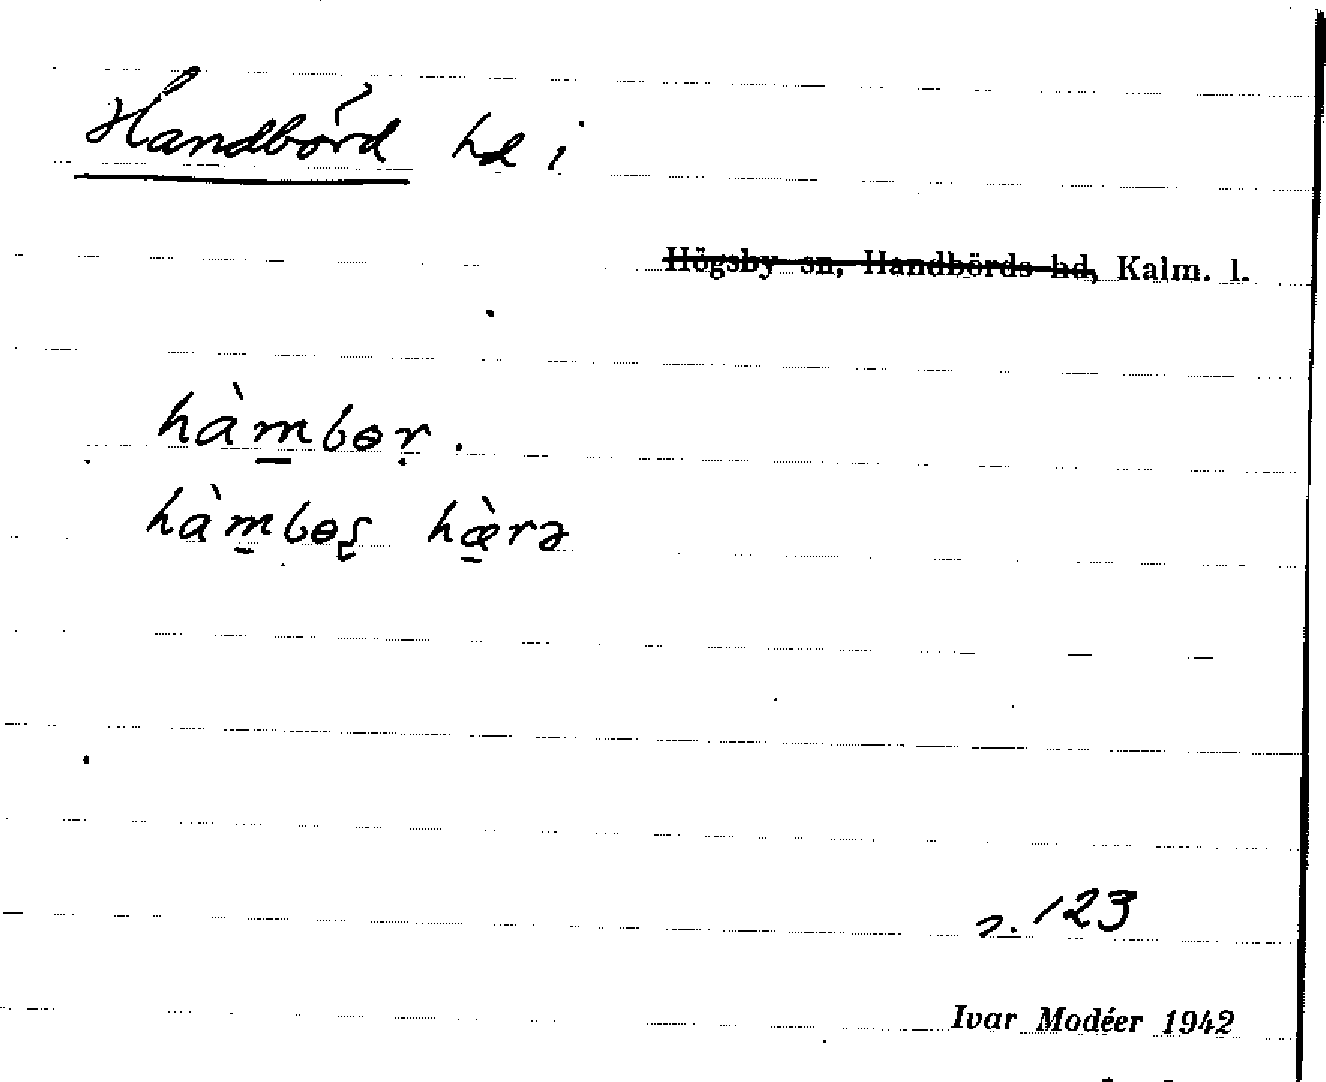 Handbörd hd i
Högsby sn, Handbörds hd, Kalm. l.
hàm̲bɵṛ.
hàm̲bɵʂ hæ̲̀rə
s. 123
Ivar Modéer 1942